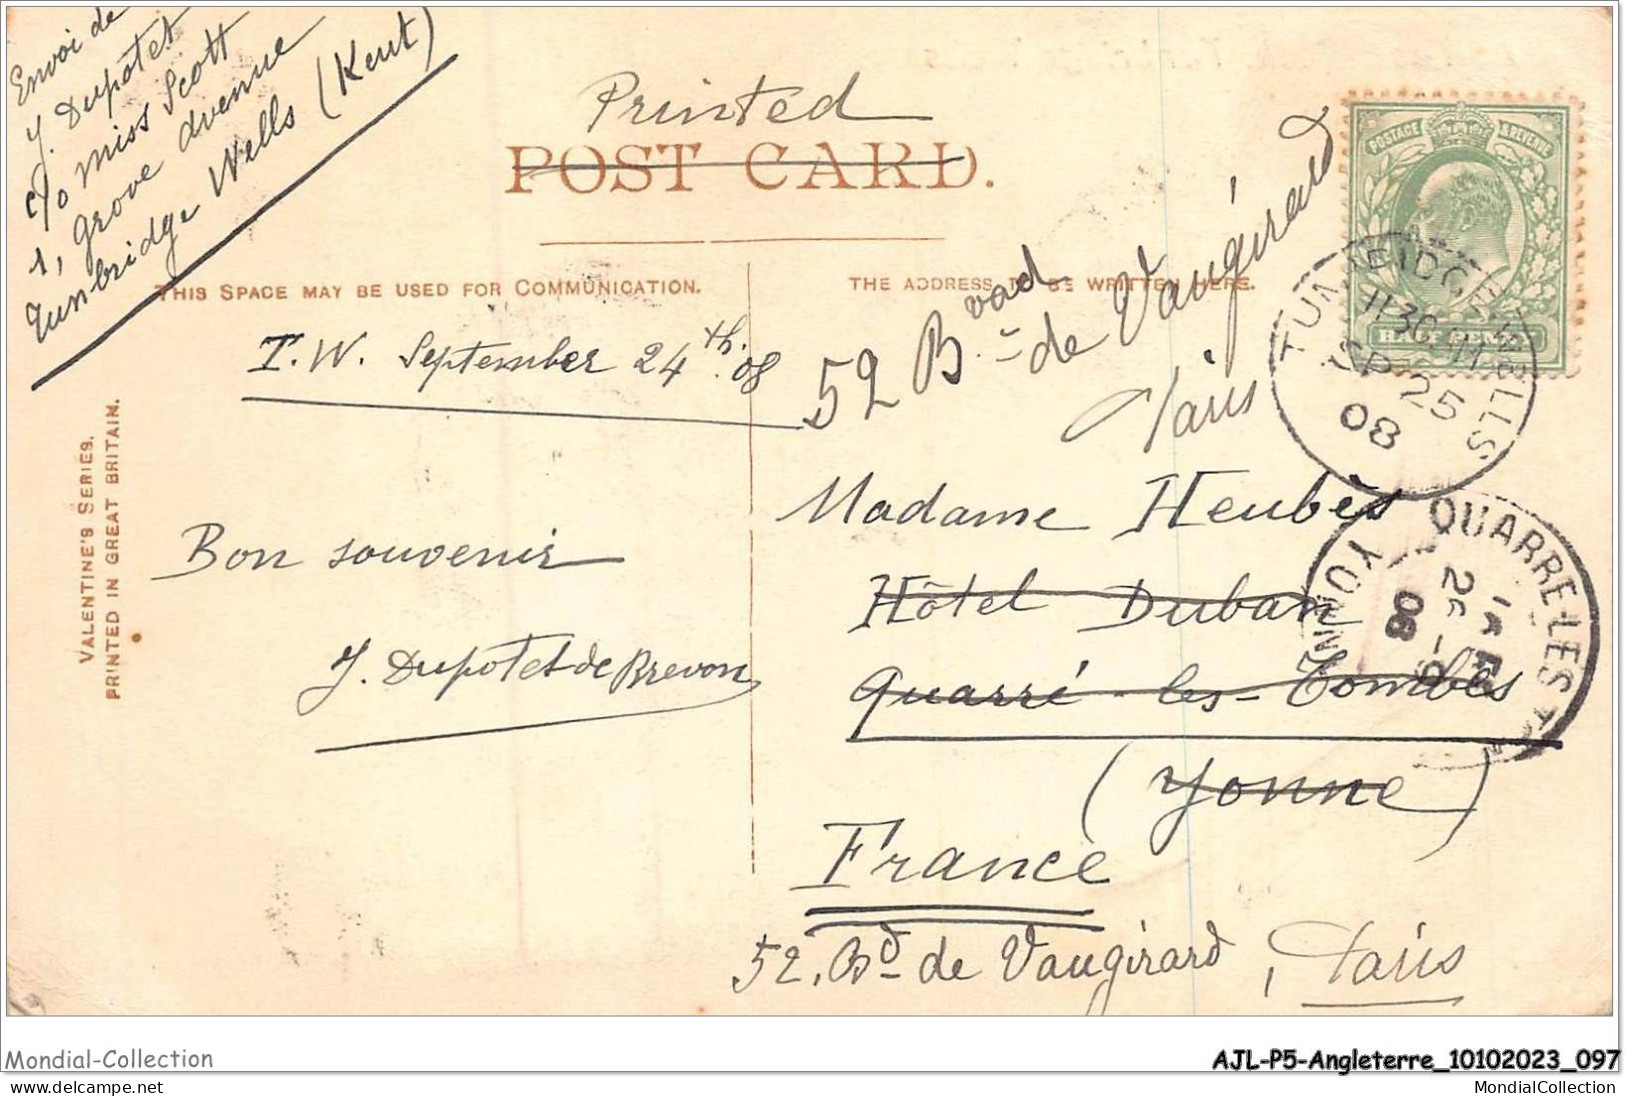 Envoi de
J. Dupotet
c/o Miss Scott
1, Grove Avenue
Tunbridge Wells (Kent)
Printed
POST CARD.
THIS SPACE MAY BE USED FOR COMMUNICATION.
THE ADDRESS TO BE WRITTEN HERE.
POSTAGE & REVENUE
HALFPENNY
TUNBRIDGE WELLS
1130 AM
SP 25
08
T.W. September 24th. 08
52 Bvad de Vaugirard
Paris
VALENTINE'S SERIES.
PRINTED IN GREAT BRITAIN.
Bon souvenir
J. Dupotet de Brevon
Madame Heubès
Hôtel Duban
Quarré-les-Tombes
(Yonne)
France
52, Bd de Vaugirard, Paris
QUARRE-LES-T
YONNE
08
Mondial-Collection
AJL-P5-Angleterre_10102023_097
www.delcampe.net
MondialCollection